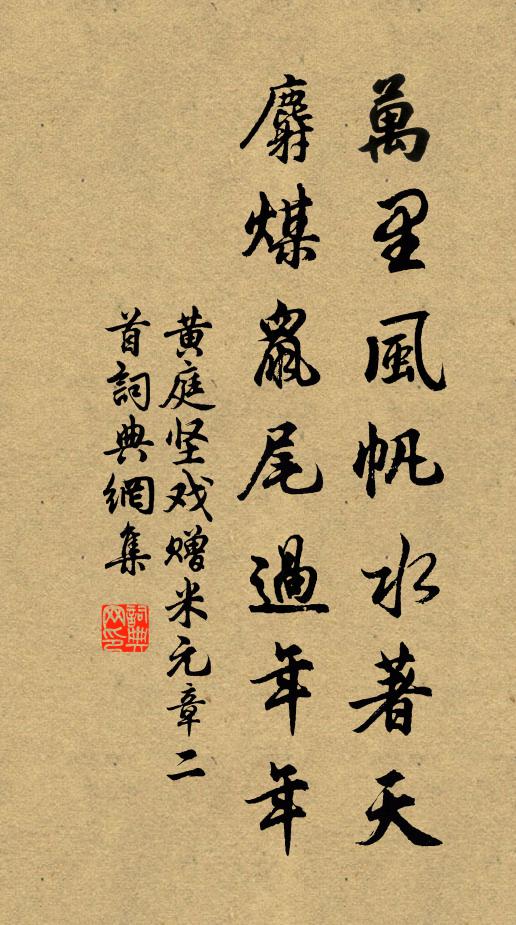 萬里風帆水著天
麝煤鼠尾過年年
黄庭坚戏赠米元章二
首詞典網集
詞典
网印